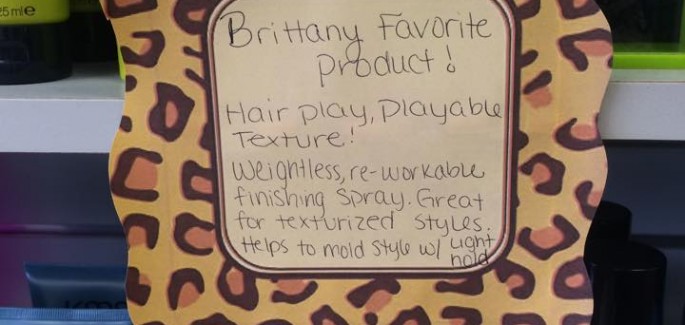 25 ml e
Brittany Favorite
product!
Hair play, Playable
Texture!
Weightless, re-workable
finishing spray. Great
for texturized styles.
Helps to mold style w/ light
hold